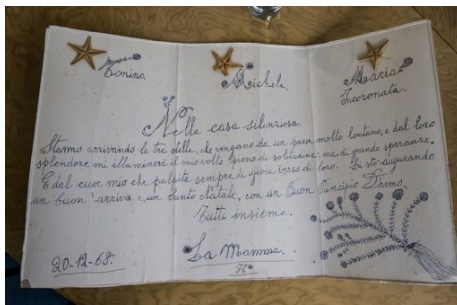 Tonino. Michele. Maria
Incoronata.
Nella casa silenziosa
Stanno arrivando le tre stelle, che vengano da un paese molto lontano, e dal loro
splendore mi illuminerà il mio volto pieno di solitudine, ma di grande speranza.
E dal cuor mio che palpita sempre di gioia verso di loro. Li sto augurando
un buon'arrivo e un Santo Natale, con un Buon Principio D'anno.
Tutti insieme.
La Mamma.
20-12-68.